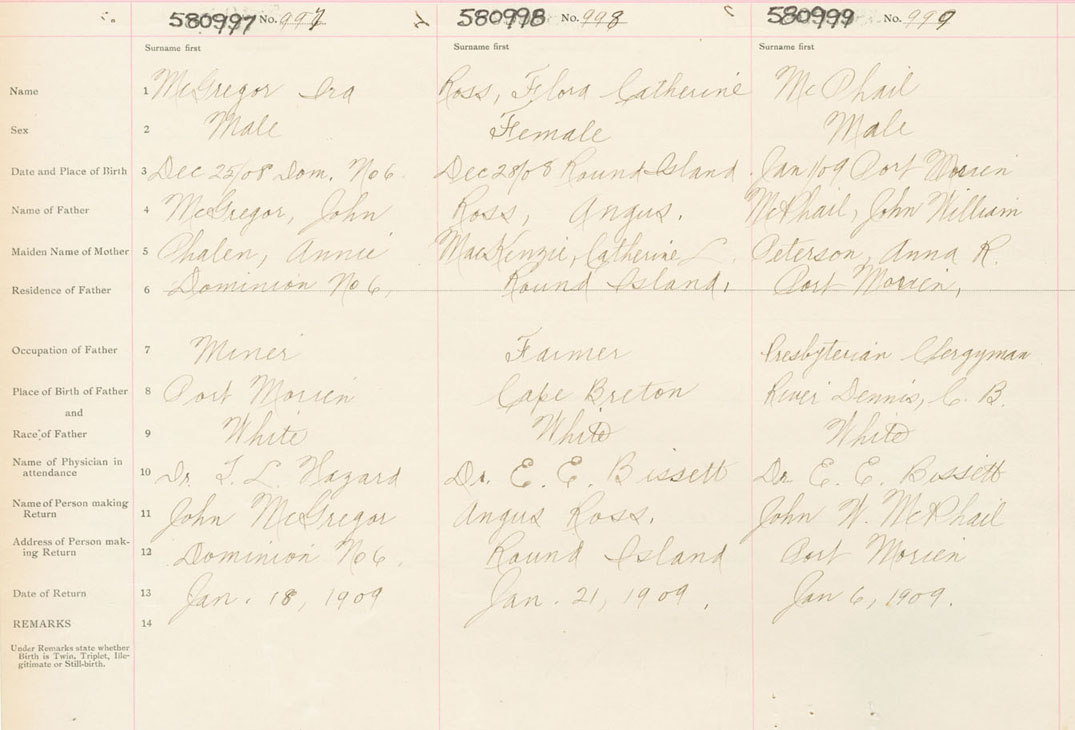 580997 No. 997 580998 No. 998 580999 No. 999
Surname first Surname first Surname first
Name 1 McGregor Ira Ross, Flora Catherine McPhail
Sex 2 Male Female Male
Date and Place of Birth 3 Dec 25/08 Dom. No 6. Dec 28/08 Round Island Jan 1/09 Port Morien
Name of Father 4 McGregor, John Ross, Angus. McPhail, John William
Maiden Name of Mother 5 Phalen, Annie MacKenzie, Catherine L. Peterson, Anna R.
Residence of Father 6 Dominion No 6, Round Island, Port Morien,
Occupation of Father 7 Miner Farmer Presbyterian Clergyman
Place of Birth of Father 8 Port Morien Cape Breton River Dennis, C. B.
and
Race of Father 9 White White White
Name of Physician in
attendance 10 Dr. L. Hazard Dr. E. E. Bissett Dr E. E. Bissett
Name of Person making
Return 11 John McGregor Angus Ross. John W. McPhail
Address of Person mak-
ing Return 12 Dominion No 6. Round Island Port Morien
Date of Return 13 Jan. 18, 1909 Jan. 21, 1909, Jan 6, 1909.
REMARKS 14
Under Remarks state whether
Birth is Twin, Triplet, Ille-
gitimate or Still-birth.